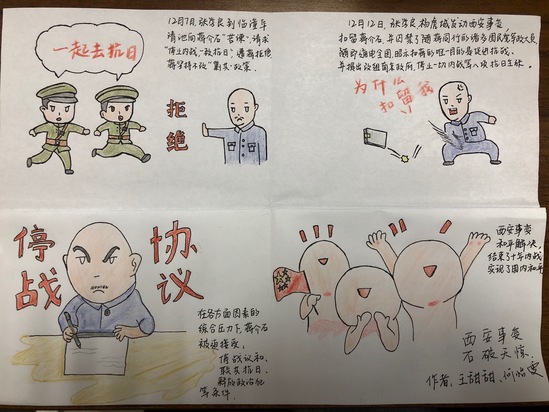 一起去抗日
12月7日,张学良到临潼华
清池向蒋介石"苦谏",请求
"停止内战,一致抗日",遭蒋拒绝
蒋坚持不改"剿共"政策.
拒绝
12月12日,张学良、杨虎城发动西安事变
扣留蒋介石,并囚禁了随蒋同行的诸多国民党军政大员,
随即通电全国,昭示扣蒋的唯一目的是促进抗战,
并提出改组南京政府,停止一切内战等八项抗日主张.
为什么
扣留我
停战
协议
在各方面因素的
综合压力下,蒋介石
被迫接受,
停战议和,
联共抗日,
释放政治犯
等条件.
!!!
西安事变
和平解决,
结束了十年内战,
实现了国内和平
西安事变
石破天惊.
作者:王甜甜、何